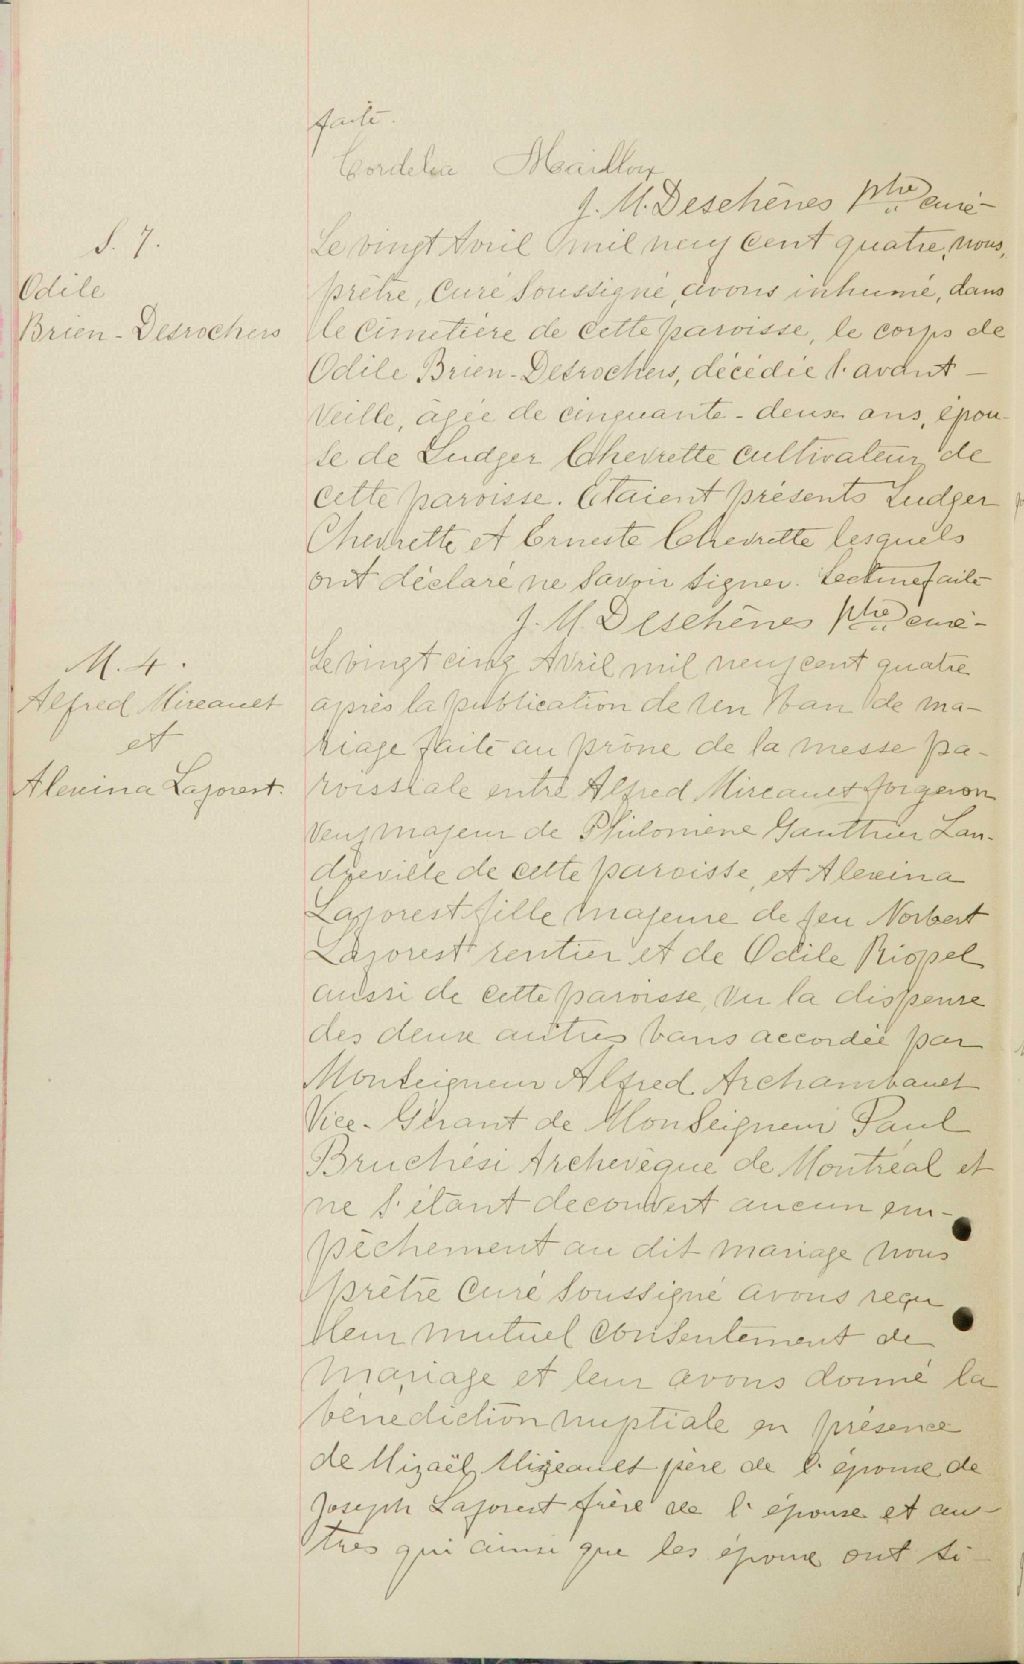 faite.
Cordelia Mailloux
J. M. Deschênes ptre curé-
S. 7.
Odile
Brien-Desrochers
Le vingt Avril mil neuf cent quatre, nous,
prêtre, curé soussigné, avons inhumé, dans
le cimetière de cette paroisse, le corps de
Odile Brien-Desrochers, décédée l'avant-
veille, âgée de cinquante-deux ans, épou-
se de Ludger Chevrette cultivateur de
cette paroisse. Etaient présents Ludger
Chevrette et Erneste Chevrette lesquels
ont déclaré ne savoir signer. Lecture faite
J. M. Deschênes ptre curé-
M. 4.
Alfred Mireault
et
Alexina Laforest.
Le vingt cinq Avril mil neuf cent quatre
après la publication de un ban de ma-
riage faite au prône de la messe pa-
roissiale entre Alfred Mireault forgeron
veuf majeur de Philomène Gauthier Lan-
dreville de cette paroisse, et Alexina
Laforest fille majeure de feu Norbert
Laforest rentier et de Odile Riopel
aussi de cette paroisse, vu la dispense
des deux autres bans accordée par
Monseigneur Alfred Archambault
Vice-Gérant de Monseigneur Paul
Bruchési Archevêque de Montréal et
ne s'étant decouvert aucun em-
pêchement au dit mariage nous
prêtre curé soussigné avons reçu
leur mutuel consentement de
mariage et leur avons donné la
bénédiction nuptiale en présence
de Mizaël Mireault père de l'époux, de
Joseph Laforest frère de l'épouse et au-
tres qui ainsi que les époux ont si-